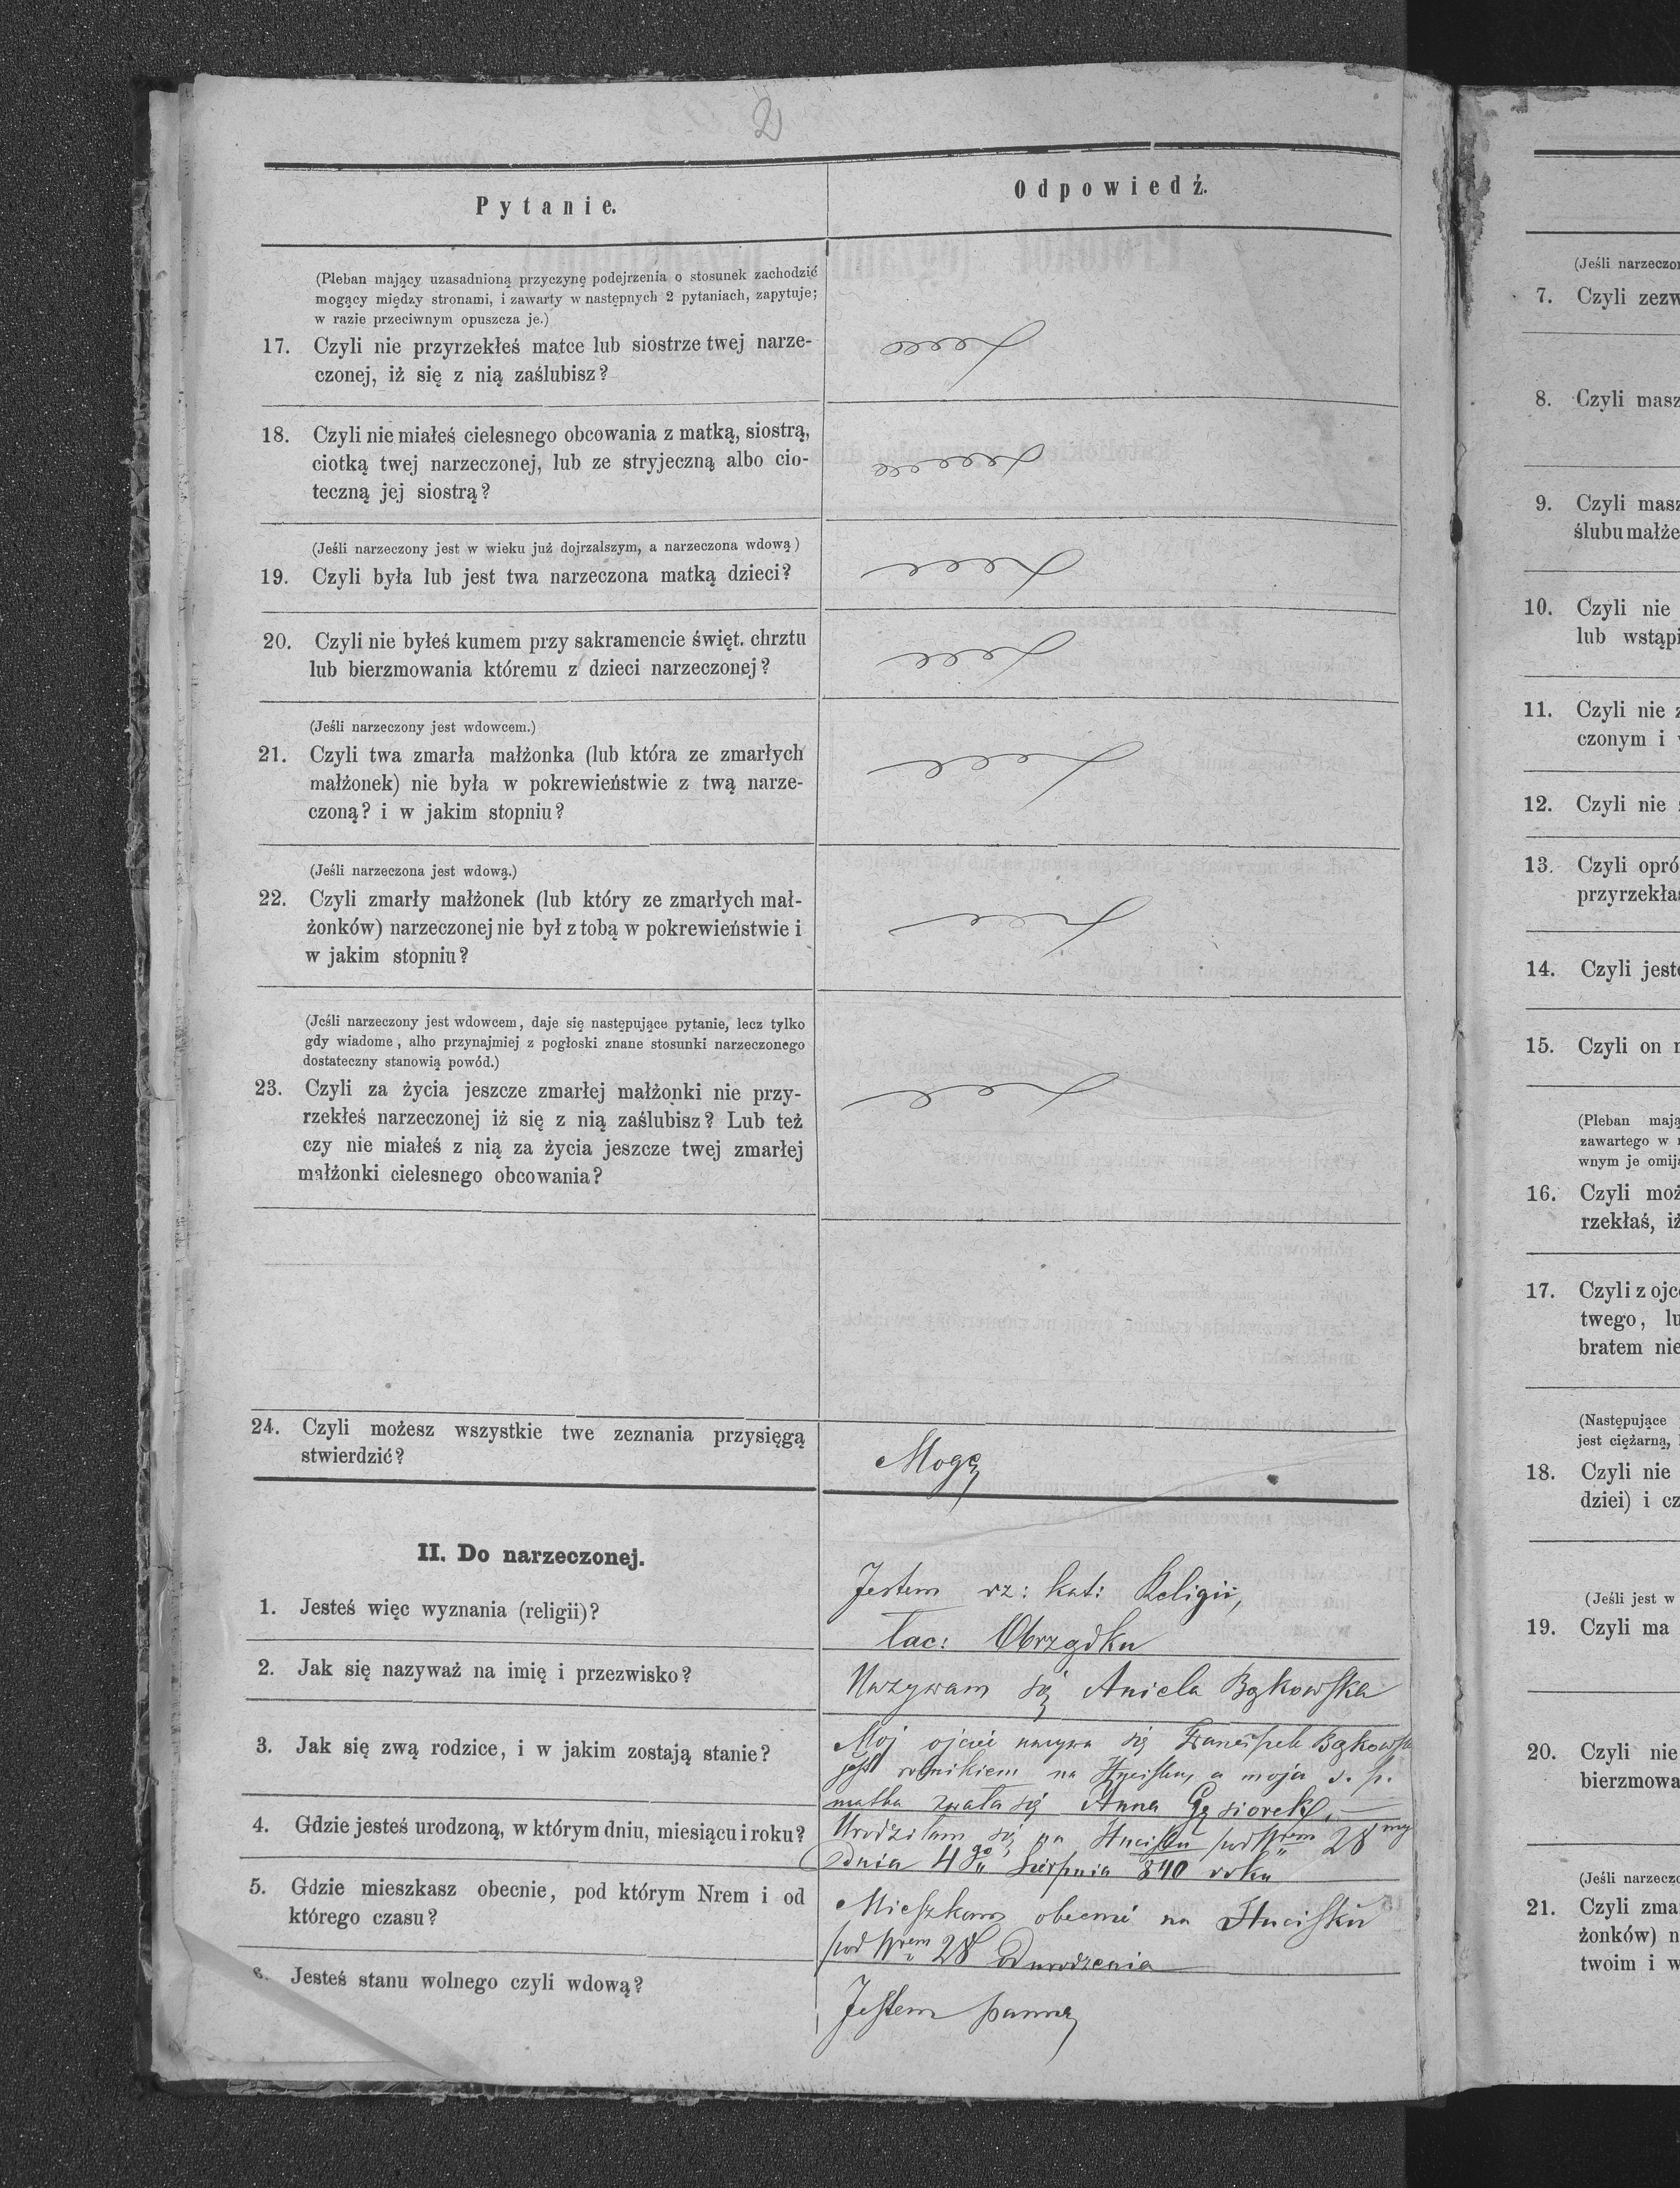 2
Pytanie.
Odpowiedź.
(Pleban mający uzasadnioną przyczynę podejrzenia o stosunek zachodzić
mogący między stronami, i zawarty w następnych 2 pytaniach, zapytuje;
w razie przeciwnym opuszcza je.)
17. Czyli nie przyrzekłeś matce lub siostrze twej narze-
czonej, iż się z nią zaślubisz?
18. Czyli nie miałeś cielesnego obcowania z matką, siostrą,
ciotką twej narzeczonej, lub ze stryjeczną albo cio-
teczną jej siostrą?
(Jeśli narzeczony jest w wieku już dojrzalszym, a narzeczona wdową)
19. Czyli była lub jest twa narzeczona matką dzieci?
20. Czyli nie byłeś kumem przy sakramencie święt. chrztu
lub bierzmowania któremu z dzieci narzeczonej?
(Jeśli narzeczony jest wdowcem.)
21. Czyli twa zmarła małżonka (lub która ze zmarłych
małżonek) nie była w pokrewieństwie z twą narze-
czoną? i w jakim stopniu?
(Jeśli narzeczona jest wdową.)
22. Czyli zmarły małżonek (lub który ze zmarłych mał-
żonków) narzeczonej nie był z tobą w pokrewieństwie i
w jakim stopniu?
(Jeśli narzeczony jest wdowcem, daje się następujące pytanie, lecz tylko
gdy wiadome, alho przynajmiej z pogłoski znane stosunki narzeczonego
dostateczny stanowią powód.)
23. Czyli za życia jeszcze zmarłej małżonki nie przy-
rzekłeś narzeczonej iż się z nią zaślubisz? Lub też
czy nie miałeś z nią za życia jeszcze twej zmarłej
małżonki cielesnego obcowania?
24. Czyli możesz wszystkie twe zeznania przysięgą
stwierdzić?
Mogę
II. Do narzeczonej.
1. Jesteś więc wyznania (religii)?
Jestem rz: kat: Religii,
łac: Obrządku
2. Jak się nazyważ na imię i przezwisko?
Nazywam się Aniela Bąkowska
3. Jak się zwą rodzice, i w jakim zostają stanie?
Mój ojciec nazywa się Franciszek
jest rolnikiem na Hucisku, a moja ś. p.
matka zwała się Anna
4. Gdzie jesteś urodzoną, w którym dniu, miesiącu i roku?
Urodziłam się na Hucisku pod Nrem 28my
dnia 4go Sierpnia 840 roku
5. Gdzie mieszkasz obecnie, pod którym Nrem i od
którego czasu?
Mieszkam obecnie na Hucisku
pod Nrem 28 od urodzenia
6. Jesteś stanu wolnego czyli wdową?
Jestem panną
(Jeśli narzeczon
7. Czyli zezw
8. Czyli masz
9. Czyli masz
ślubu małże
10. Czyli nie
lub wstąpi
11. Czyli nie z
czonym i
12. Czyli nie
13. Czyli opró
przyrzekła
14. Czyli jest
15. Czyli on
(Pleban mają
zawartego w
wnym je omij
16. Czyli moż
rzekłaś, iż
17. Czyli z ojc
twego, lu
bratem nie
(Następujące
jest ciężarną,
18. Czyli nie
dziei) i cz
(Jeśli jest w
19. Czyli ma
20. Czyli nie
bierzmowa
(Jeśli narzecz
21. Czyli zma
żonków) n
twoim i w